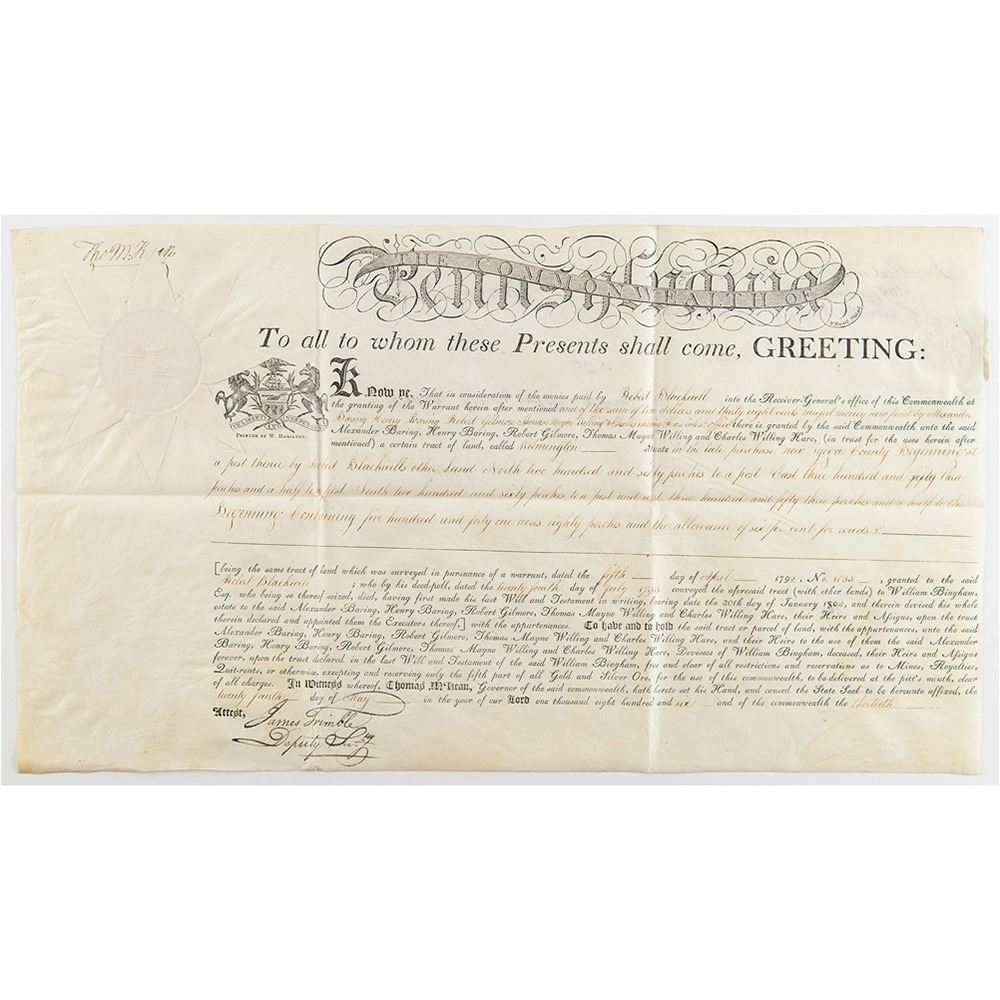 Tho M:K
THE COMMONWEALTH OF
Pennsylvania
To all to whom these Presents shall come, GREETING:
PRINTED BY W. HAMILTON.
Know ye, That in consideration of the monies paid by Robert Blackwell into the Receiver-General's office of this Commonwealth at
the granting of the Warrant herein after mentioned and of the sum of ten dollars and thirty eight cents lawful money now paid by Alexander
Baring Henry Baring Robert Gilmore Thomas Mayne Willing & Charles Willing Hare into office there is granted by the said Commonwealth unto the said
Alexander Baring, Henry Baring, Robert Gilmore, Thomas Mayne Willing and Charles Willing Hare, (in trust for the uses herein after
mentioned) a certain tract of land, called Situate in the late purchase now County Beginning at
a post thence by Robert Blackwells other Land North two hundred and sixty perches to a post East three hundred and fifty three
perches and a half to a post South two hundred and sixty perches to a post and west three hundred and fifty three perches and a half to the
Beginning. Containing five hundred and forty one acres eighty perches and the allowance of six per cent for roads &c.
[being the same tract of land which was surveyed in pursuance of a warrant, dated the fifth day of April 1792, No. , granted to the said
Robert Blackwell ; who by his deed-poll, dated the twenty fourth day of July 1793 conveyed the aforesaid tract (with other lands) to William Bingham,
Esq. who being so thereof seized, died, having first made his last Will and Testament in writing, bearing date the 30th day of January 1804, and therein devised his whole
estate to the said Alexander Baring, Henry Baring, Robert Gilmore, Thomas Mayne Willing and Charles Willing Hare, their Heirs and Assigns, upon the trust
therein declared and appointed them the Executors thereof.] with the appurtenances. To have and to hold the said tract or parcel of land, with the appurtenances, unto the said
Alexander Baring, Henry Baring, Robert Gilmore, Thomas Mayne Willing and Charles Willing Hare, and their Heirs to the use of them the said Alexander
Baring, Henry Baring, Robert Gilmore, Thomas Mayne Willing and Charles Willing Hare, Devisees of William Bingham, deceased, their Heirs and Assigns
forever, upon the trust declared in the last Will and Testament of the said William Bingham, free and clear of all restrictions and reservations as to Mines, Royalties,
Quit-rents, or otherwise, excepting and reserving only the fifth part of all Gold and Silver Ore, for the use of this commonwealth, to be delivered at the pitt's mouth, clear
of all charges. In Witness whereof, Thomas M'Kean, Governor of the said commonwealth, hath hereto set his Hand, and caused the State Seal to be hereunto affixed, the
twenty fourth day of May in the year of our Lord one thousand eight hundred and six and of the commonwealth the thirtieth
Attest,
James Trimble
Deputy Secry